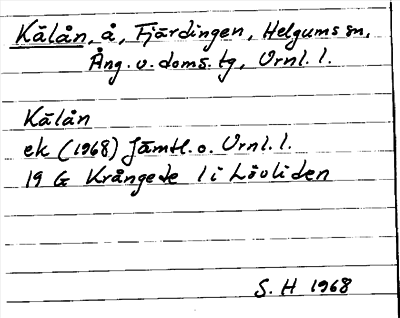 Kälån, å, Fjärdingen, Helgums sn,
Ång. v. doms. tg, Vrnl. l.
Kälån
ek (1968) Jämtl. o. Vrnl. l.
19 G Krångede l i Lövliden
S. H 1968